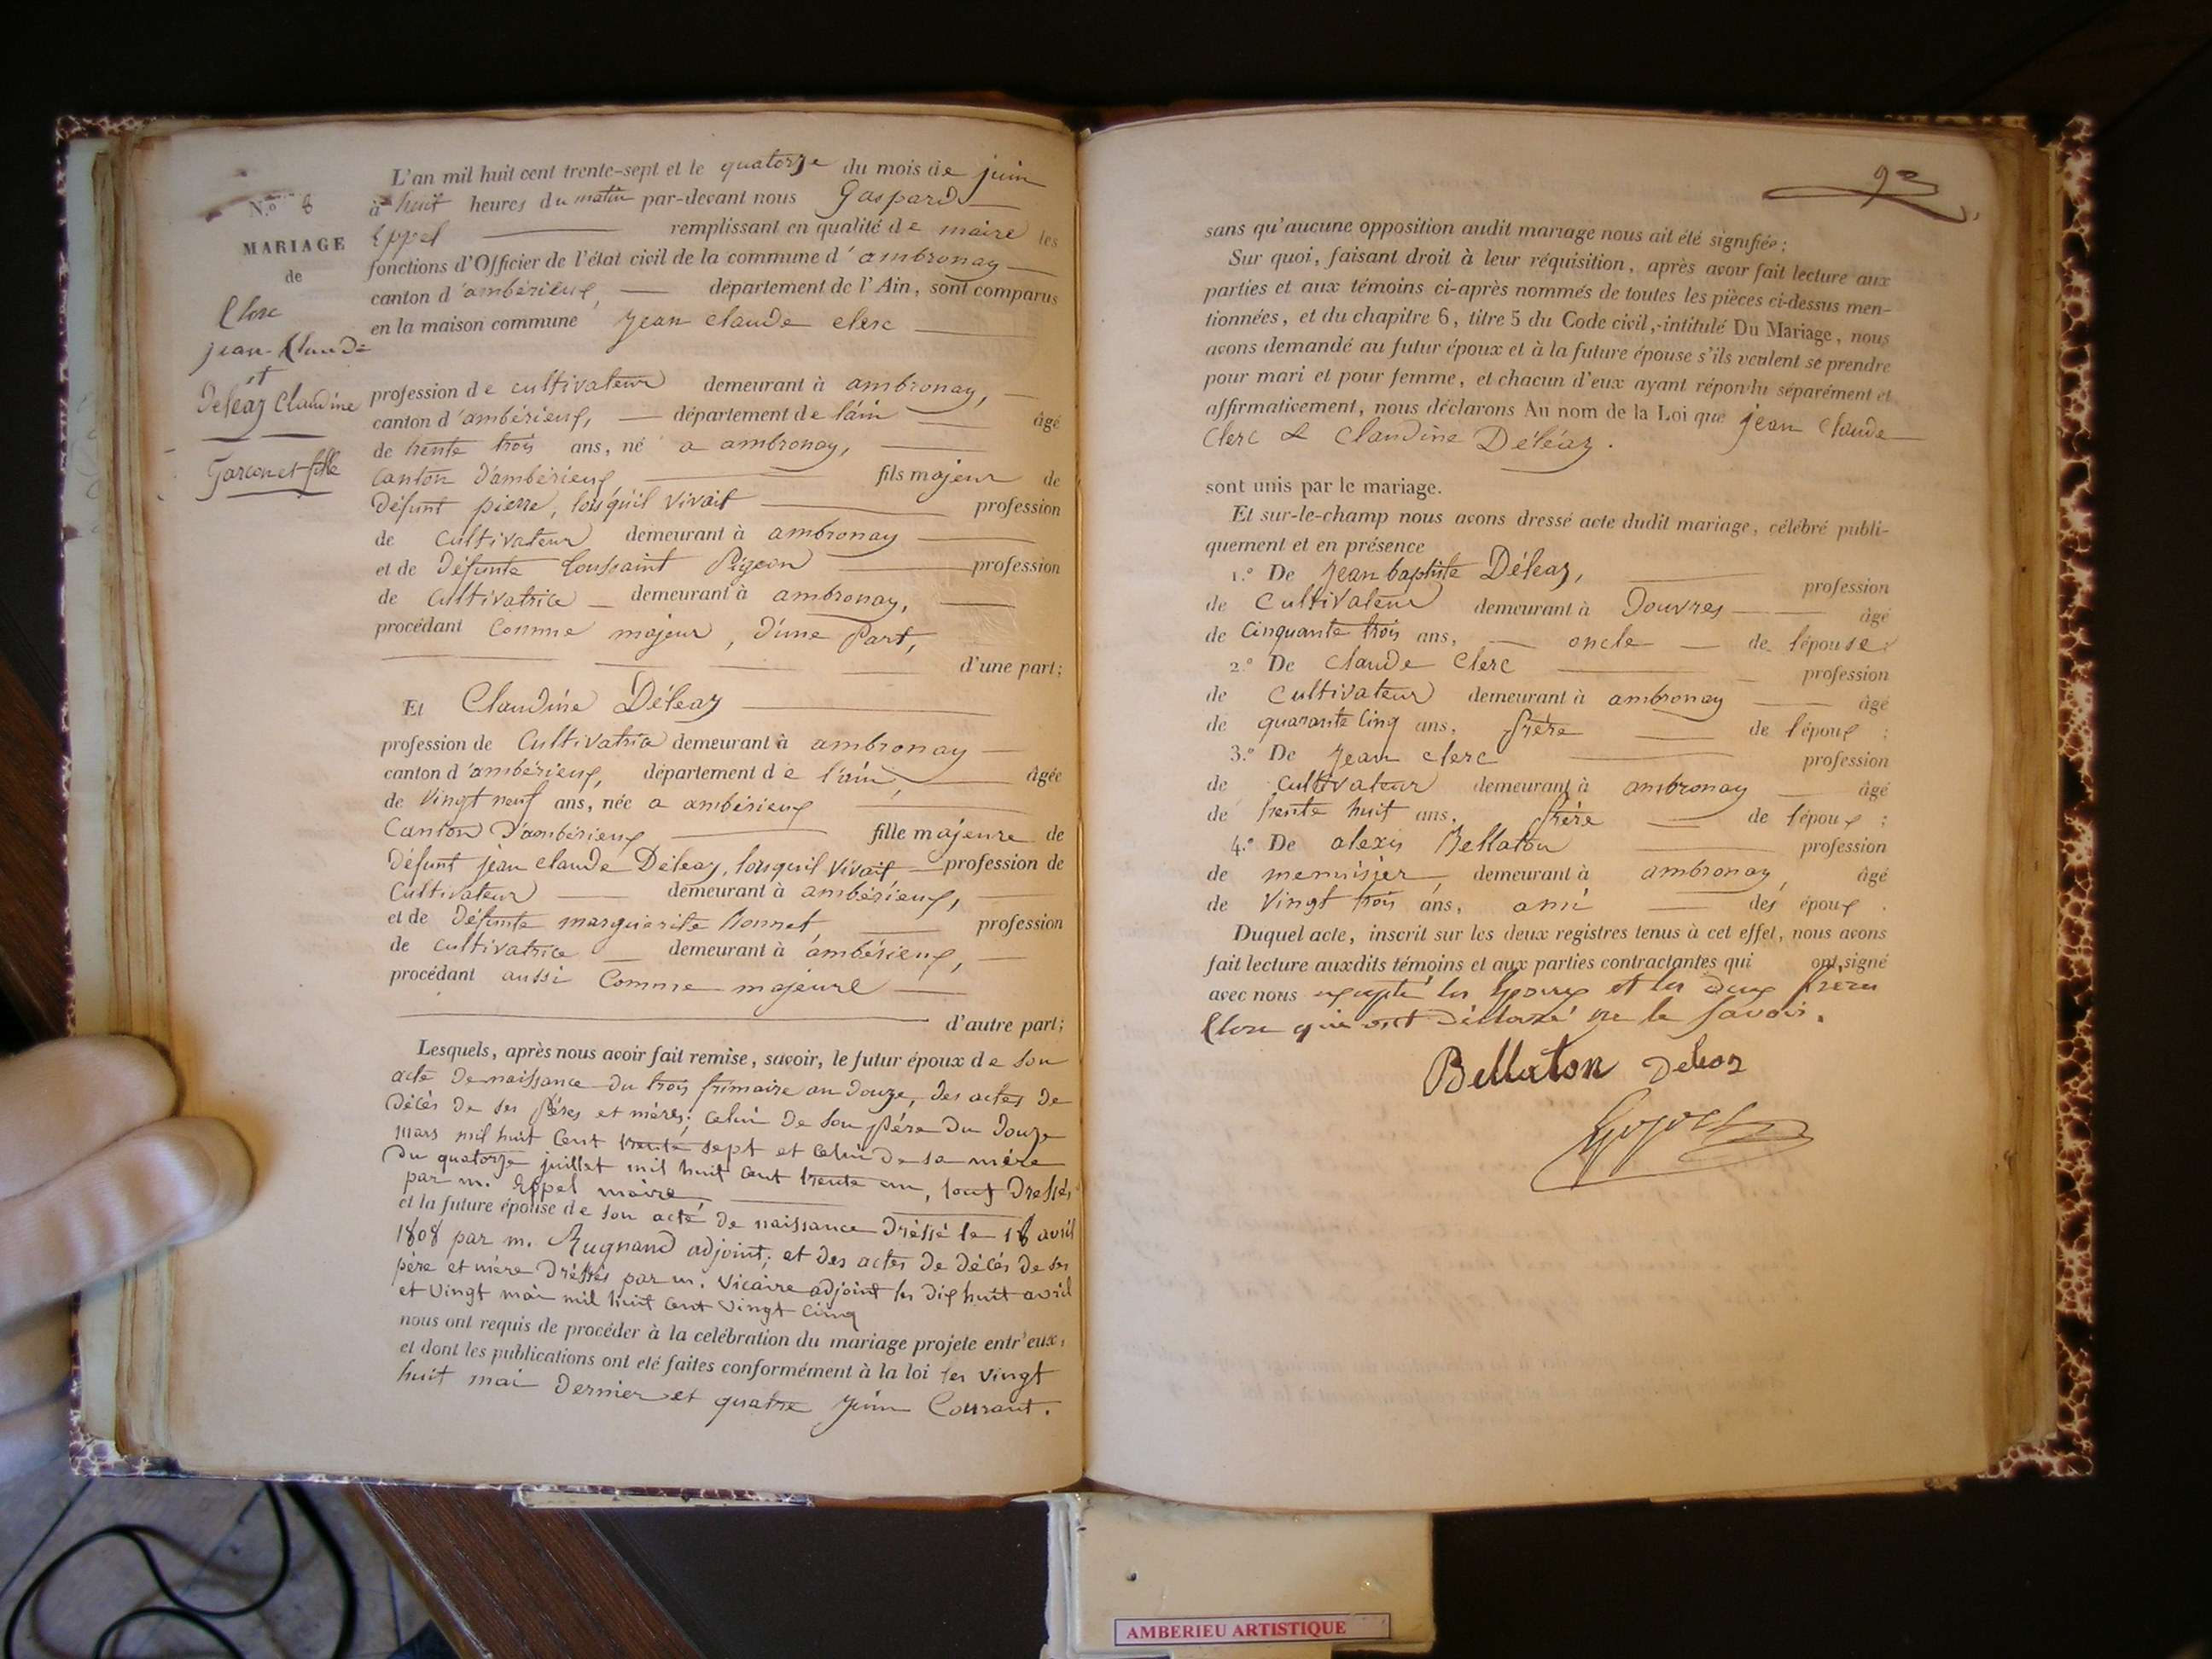 N.º 8
MARIAGE
de
Clerc
jean Claude
et
Déléaz Claudine
Garçon et fille
L'an mil huit cent trente-sept et le quatorze du mois de juin
à huit heures du matin par-devant nous Gaspard
Eppel remplissant en qualité de maire les
fonctions d'Officier de l'état civil de la commune d'ambronay
canton d'ambérieux, département de l'Ain, sont comparus
en la maison commune jean claude clerc
profession de cultivateur demeurant à ambronay,
canton d'ambérieux, département de l'ain âgé
de trente trois ans, né a ambronay,
canton d'ambérieux fils majeur de
Défunt pierre, lorsqu'il vivait profession
de cultivateur demeurant à ambronay
et de Défunte toussaint Pigeon profession
de cultivatrice demeurant à ambronay,
procédant comme majeur, d'une Part,
d'une part;
Et Claudine Déléaz
profession de Cultivatrice demeurant à ambronay
canton d'ambérieux, département de l'ain, âgée
de vingt neuf ans, née a ambérieux
Canton d'ambérieux fille majeure de
Défunt jean claude Déléaz, lorsquil vivait profession de
Cultivateur demeurant à ambérieux,
et de Défunte marguerite Bonnet, profession
de cultivatrice demeurant à ambérieux,
procédant aussi Comme majeure
d'autre part;
Lesquels, après nous avoir fait remise, savoir, le futur époux de son
acte de naissance du trois frimaire an douze, des actes de
décès de ses pères et mères; celui de son père du douze
mars mil huit cent trente sept et celui de sa mère
du quatorze juillet mil huit cent trente un, tous dressés
par m. Eppel maire
et la future épouse de son acte de naissance dressé le 18 avril
1808 par m. Rugnand adjoint; et des actes de décés de ses
père et mère dréssés par m. Vicaire adjoint les dix huit avril
et vingt mai mil huit cent vingt cinq
nous ont requis de procéder à la celébration du mariage projete entr'eux,
et dont les publications ont eté faites conformément à la loi les vingt
huit mai dernier et quatre juin Courant.
92
sans qu'aucune opposition audit mariage nous ait été signifiée;
Sur quoi, faisant droit à leur réquisition, après avoir fait lecture aux
parties et aux témoins ci-après nommés de toutes les pièces ci-dessus men-
tionnées, et du chapitre 6, titre 5 du Code civil, intitulé Du Mariage, nous
avons demandé au futur époux et à la future épouse s'ils veulent se prendre
pour mari et pour femme, et chacun d'eux ayant répondu séparément et
affirmativement, nous déclarons Au nom de la Loi que jean Claude
Clerc & Claudine Déléaz.
sont unis par le mariage.
Et sur-le-champ nous avons dressé acte dudit mariage, célébré publi-
quement et en présence
1.º De jean baptiste Déléaz, profession
de Cultivateur demeurant à Douvres âgé
de Cinquante trois ans, oncle de l'épouse;
2.º De Claude Clerc profession
de Cultivateur demeurant à ambronay âgé
de quarante cinq ans, frère de l'époux;
3.º De jean clerc profession
de cultivateur demeurant à ambronay âgé
de trente huit ans, frère de l'époux;
4.º De alexis Bellaton profession
de menuisier demeurant à ambronay, âgé
de vingt trois ans, ami des époux.
Duquel acte, inscrit sur les deux registres tenus à cet effet, nous avons
fait lecture auxdits témoins et aux parties contractantes qui ont signé
avec nous excepté les époux et les deux frères
Clerc qui ont déclaré ne le savoir.
Bellaton Deleaz
AMBERIEU ARTISTIQUE